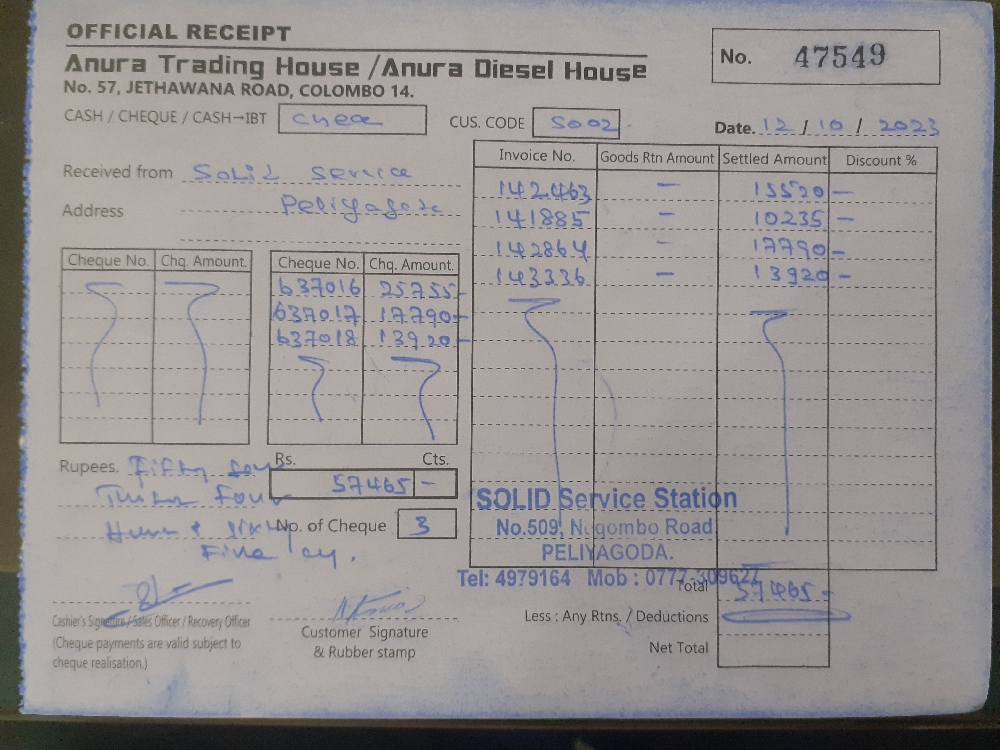 OFFICIAL RECEIPT
Anura Trading House /Anura Diesel House
No. 57, JETHAWANA ROAD, COLOMBO 14.
No. 47549
CASH / CHEQUE / CASH–IBT
CUS. CODE S002
Date. 12 / 10 / 2023
Received from Solid Service
Address Peliyagoda
Invoice No. Goods Rtn Amount Settled Amount Discount %
142463 – 15520 –
141885 – 10235 –
142864 – 17790 –
143336 – 13920 –
Cheque No. Chq. Amount.
Cheque No. Chq. Amount.
637016 25755–
637017 17790–
637018 13920–
Rupees. Fifty
Four
Fine
Rs. Cts.
57465 –
No. of Cheque 3
SOLID Service Station
No.509, Negombo Road
PELIYAGODA.
Tel: 4979164 Mob : 0777-309627
Total 57465–
Less : Any Rtns. / Deductions
Net Total
Cashier's Signature / Sales Officer / Recovery Officer
(Cheque payments are valid subject to
cheque realisation.)
Customer Signature
& Rubber stamp